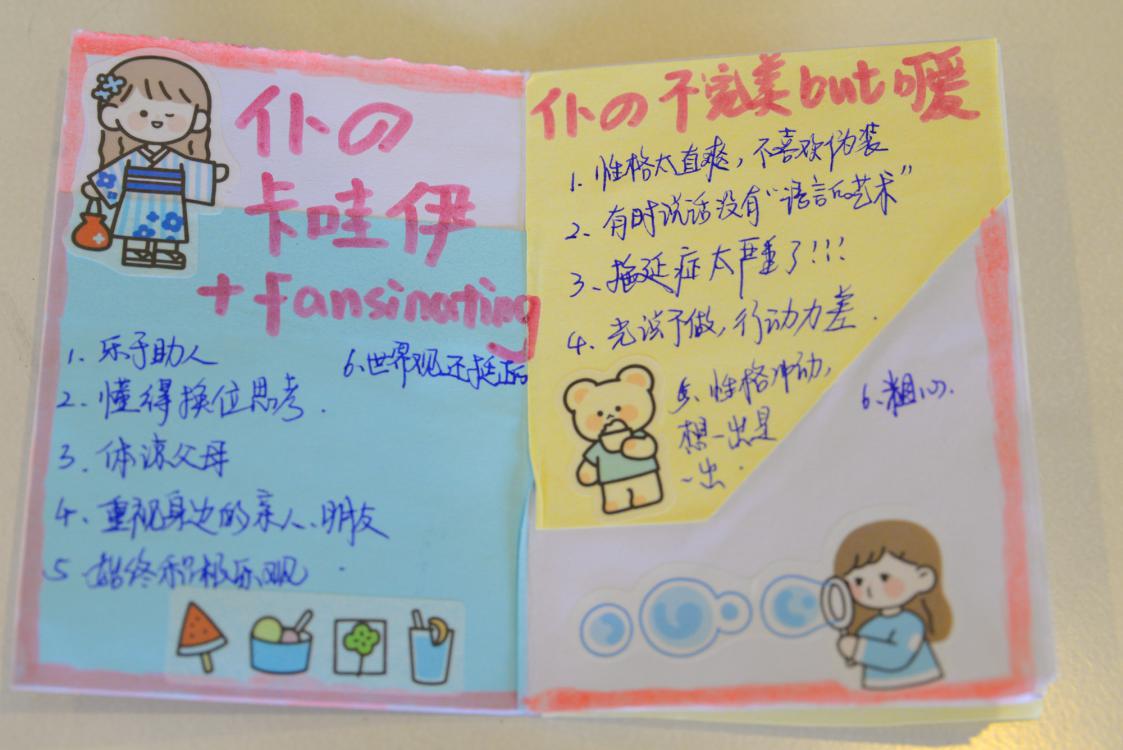 仆の
卡哇伊
+fansinating
1、乐于助人
2、懂得换位思考.
3、体谅父母
4、重视身边的亲人、朋友
5、始终积极乐观.
6、世界观还挺正的
仆の不完美but暖
1、性格太直爽，不喜欢伪装
2、有时说话没有“语言的艺术”
3、拖延症太严重了!!!
4、光说不做，行动力差.
5、性格冲动，
想一出是
一出.
6、粗心.